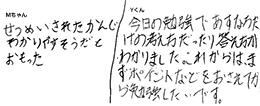 Mちゃん
せつめいされたかんじ
わかりやすそうだと
おもった
Yくん
今日の勉強であすなろだ
けの考え方だったり答えかわ
わかりました。これからはま
ずポイントなどをおさえてか
ら勉強したいです。